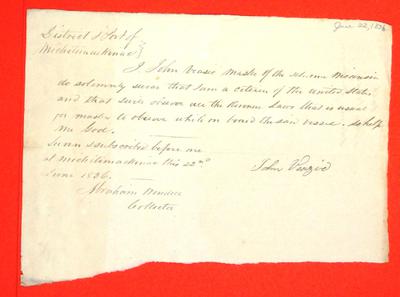 June 22, 1836
District & Port of
Michilimackinac
I John Venzie Master of the Schooner Wisconsin
do solemnly swear that I am a citizen of the United States
and that
observe all the Revenue Laws that is usual
for master to observe while on board the said vessel. So help
me God.
Sworn & subscribed before me
at Michilimackinac this 22nd
June 1836.
John
Abraham Wendell
Collector